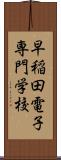 早稲田電子
専門学校